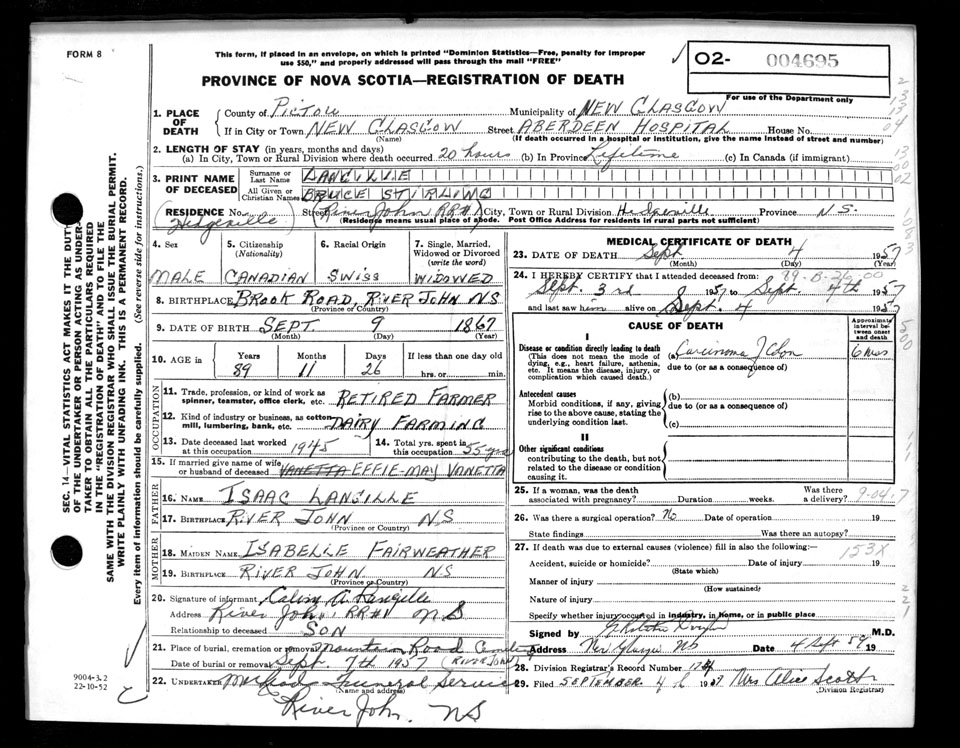 FORM 8
This form, if placed in an envelope, on which is printed "Dominion Statistics—Free, penalty for improper
use $50," and properly addressed will pass through the mail "FREE"
02- 004695
For use of the Department only
PROVINCE OF NOVA SCOTIA—REGISTRATION OF DEATH
1. PLACE OF DEATH
County of PICTOU Municipality of NEW GLASGOW
If in City or Town NEW GLASGOW Street ABERDEEN HOSPITAL House No.
(Name) (If death occurred in a hospital or institution, give the name instead of street and number)
2. LENGTH OF STAY (in years, months and days)
(a) In City, Town or Rural Division where death occurred 20 hours (b) In Province Lifetime (c) In Canada (if immigrant)
3. PRINT NAME OF DECEASED
Surname or Last Name LANGILLE
All Given or Christian Names BRUCE STIRLING
RESIDENCE No. Street River John RR#1 City, Town or Rural Division Hedgeville Province N.S.
(Hedgeville) (Residence means usual place of abode. Post Office Address for residents in rural parts not sufficient)
4. Sex 5. Citizenship (Nationality) 6. Racial Origin 7. Single, Married, Widowed or Divorced (write the word)
MALE CANADIAN SWISS WIDOWED
8. BIRTHPLACE BROOK ROAD, RIVER JOHN NS
(Province or Country)
9. DATE OF BIRTH SEPT 9 1867
(Month) (Day) (Year)
10. AGE in Years Months Days If less than one day old
89 11 26 hrs. or min.
OCCUPATION
11. Trade, profession, or kind of work as spinner, teamster, office clerk, etc. RETIRED FARMER
12. Kind of industry or business, as cotton-mill, lumbering, bank, etc. DAIRY FARMING
13. Date deceased last worked at this occupation 1945 14. Total yrs. spent in this occupation 55 yrs
15. If married give name of wife or husband of deceased VANETTA EFFIE-MAY VANETTA
FATHER
16. NAME ISAAC LANGILLE
17. BIRTHPLACE RIVER JOHN NS
(Province or Country)
MOTHER
18. MAIDEN NAME ISABELLE FAIRWEATHER
19. BIRTHPLACE RIVER JOHN NS
(Province or Country)
20. Signature of informant Calvin A. Langille
Address River John, RR#1 N S
Relationship to deceased SON
21. Place of burial, cremation or removal Mountain Road Cemetery
Date of burial or removal Sept. 7th 1957 (RIVER JOHN)
22. UNDERTAKER Funeral Service
(Name and address)
River John. NS
9004-3.2
22-10-52
MEDICAL CERTIFICATE OF DEATH
23. DATE OF DEATH Sept 4 1957
(Month) (Day) (Year)
89-B-26-00
24. I HEREBY CERTIFY that I attended deceased from:
Sept. 3rd 1957 to Sept. 4th 1957
and last saw him alive on Sept. 4 1957
CAUSE OF DEATH
Approximate interval between onset and death
I
Disease or condition directly leading to death
(This does not mean the mode of dying, e.g., heart failure, asthenia, etc. It means the disease, injury, or complication which caused death.)
(a) Carcinoma of Colon 6 mos
due to (or as a consequence of)
Antecedent causes
Morbid conditions, if any, giving rise to the above cause, stating the underlying condition last.
(b)
due to (or as a consequence of)
(c)
II
Other significant conditions
contributing to the death, but not related to the disease or condition causing it.
25. If a woman, was the death associated with pregnancy? Duration weeks. Was there a delivery?
9-04-7
26. Was there a surgical operation? No Date of operation 19
State findings Was there an autopsy?
27. If death was due to external causes (violence) fill in also the following:—
153X
Accident, suicide or homicide? Date of injury 19
(State which)
Manner of injury
(How sustained)
Nature of injury
Specify whether injury occurred in industry, in home, or in public place
Signed by M.D.
Address New Glasgow NS Date 4 Sept 57 19
28. Division Registrar's Record Number 174
29. Filed SEPTEMBER 4th 1957 Mrs Alice Scott
(Division Registrar)
SEC. 14—VITAL STATISTICS ACT MAKES IT THE DUTY
OF THE UNDERTAKER OR PERSON ACTING AS UNDER-
TAKER TO OBTAIN ALL THE PARTICULARS REQUIRED
IN THE "REGISTRATION OF DEATH" AND TO FILE THE
SAME WITH THE DIVISION REGISTRAR WHO SHALL ISSUE THE BURIAL PERMIT.
WRITE PLAINLY WITH UNFADING INK. THIS IS A PERMANENT RECORD.
Every item of information should be carefully supplied. (See reverse side for instructions.)